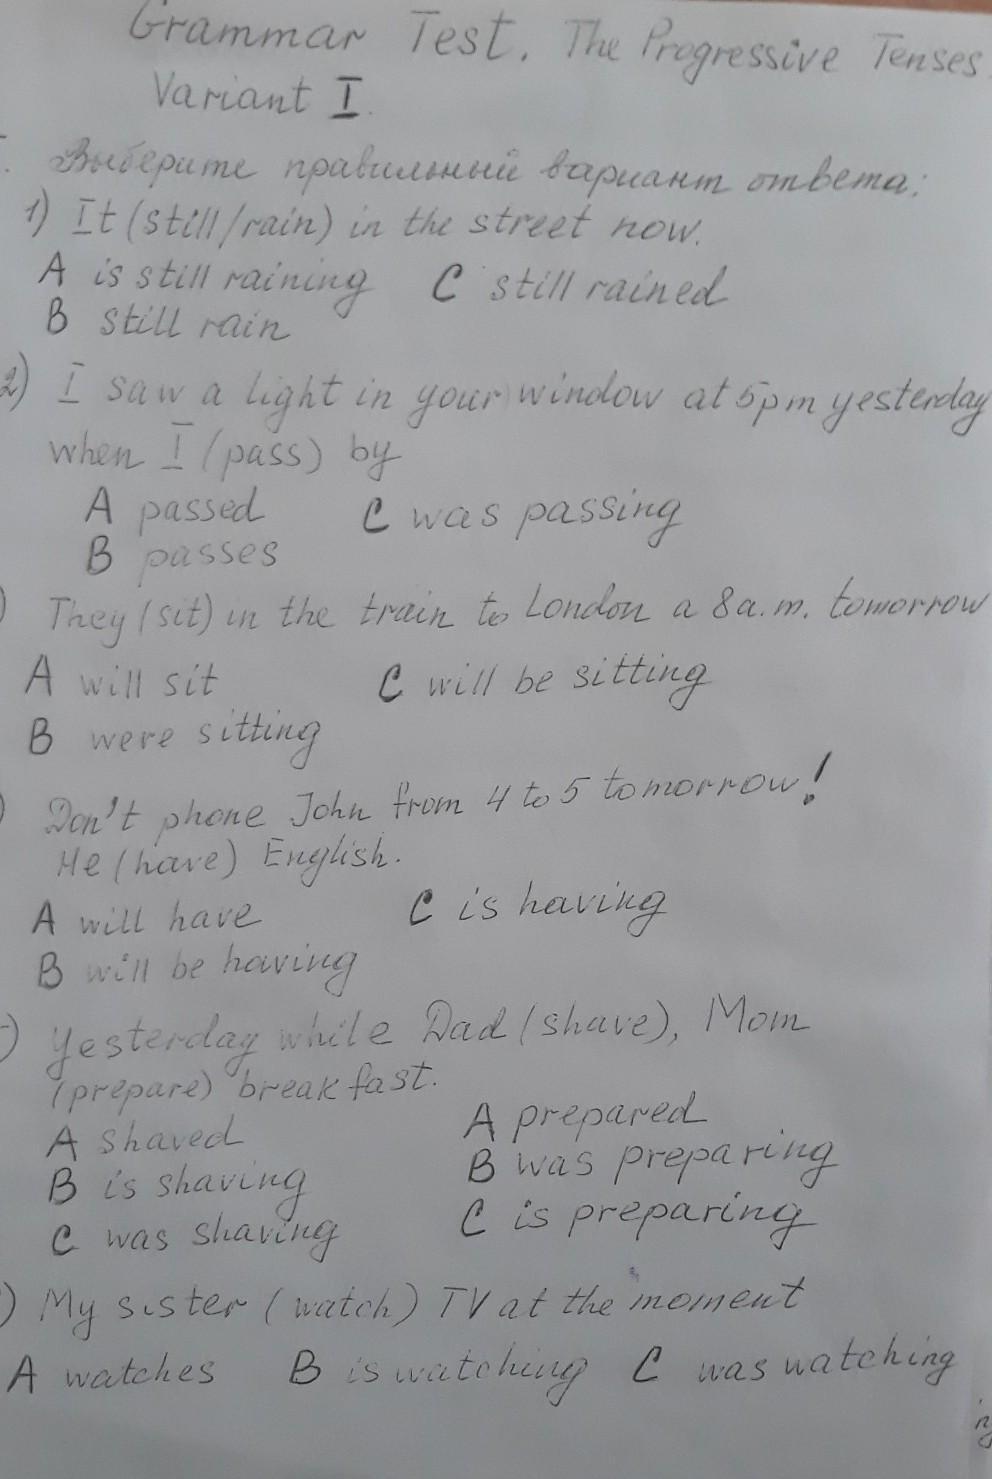 Grammar Test. The Progressive Tenses.
Variant I.
Выберите правильный вариант ответа:
1) It (still/rain) in the street now.
A is still raining C still rained
B still rain
2) I saw a light in your window at 5pm yesterday
when I (pass) by
A passed C was passing
B passes
) They (sit) in the train to London a 8 a.m. tomorrow
A will sit C will be sitting
B were sitting
) Don't phone John from 4 to 5 tomorrow!
He (have) English.
A will have C is having
B will be having
) Yesterday while Dad (shave), Mom
(prepare) breakfast.
A shaved A prepared
B is shaving B was preparing
C was shaving C is preparing
) My sister (watch) TV at the moment
A watches B is watching C was watching